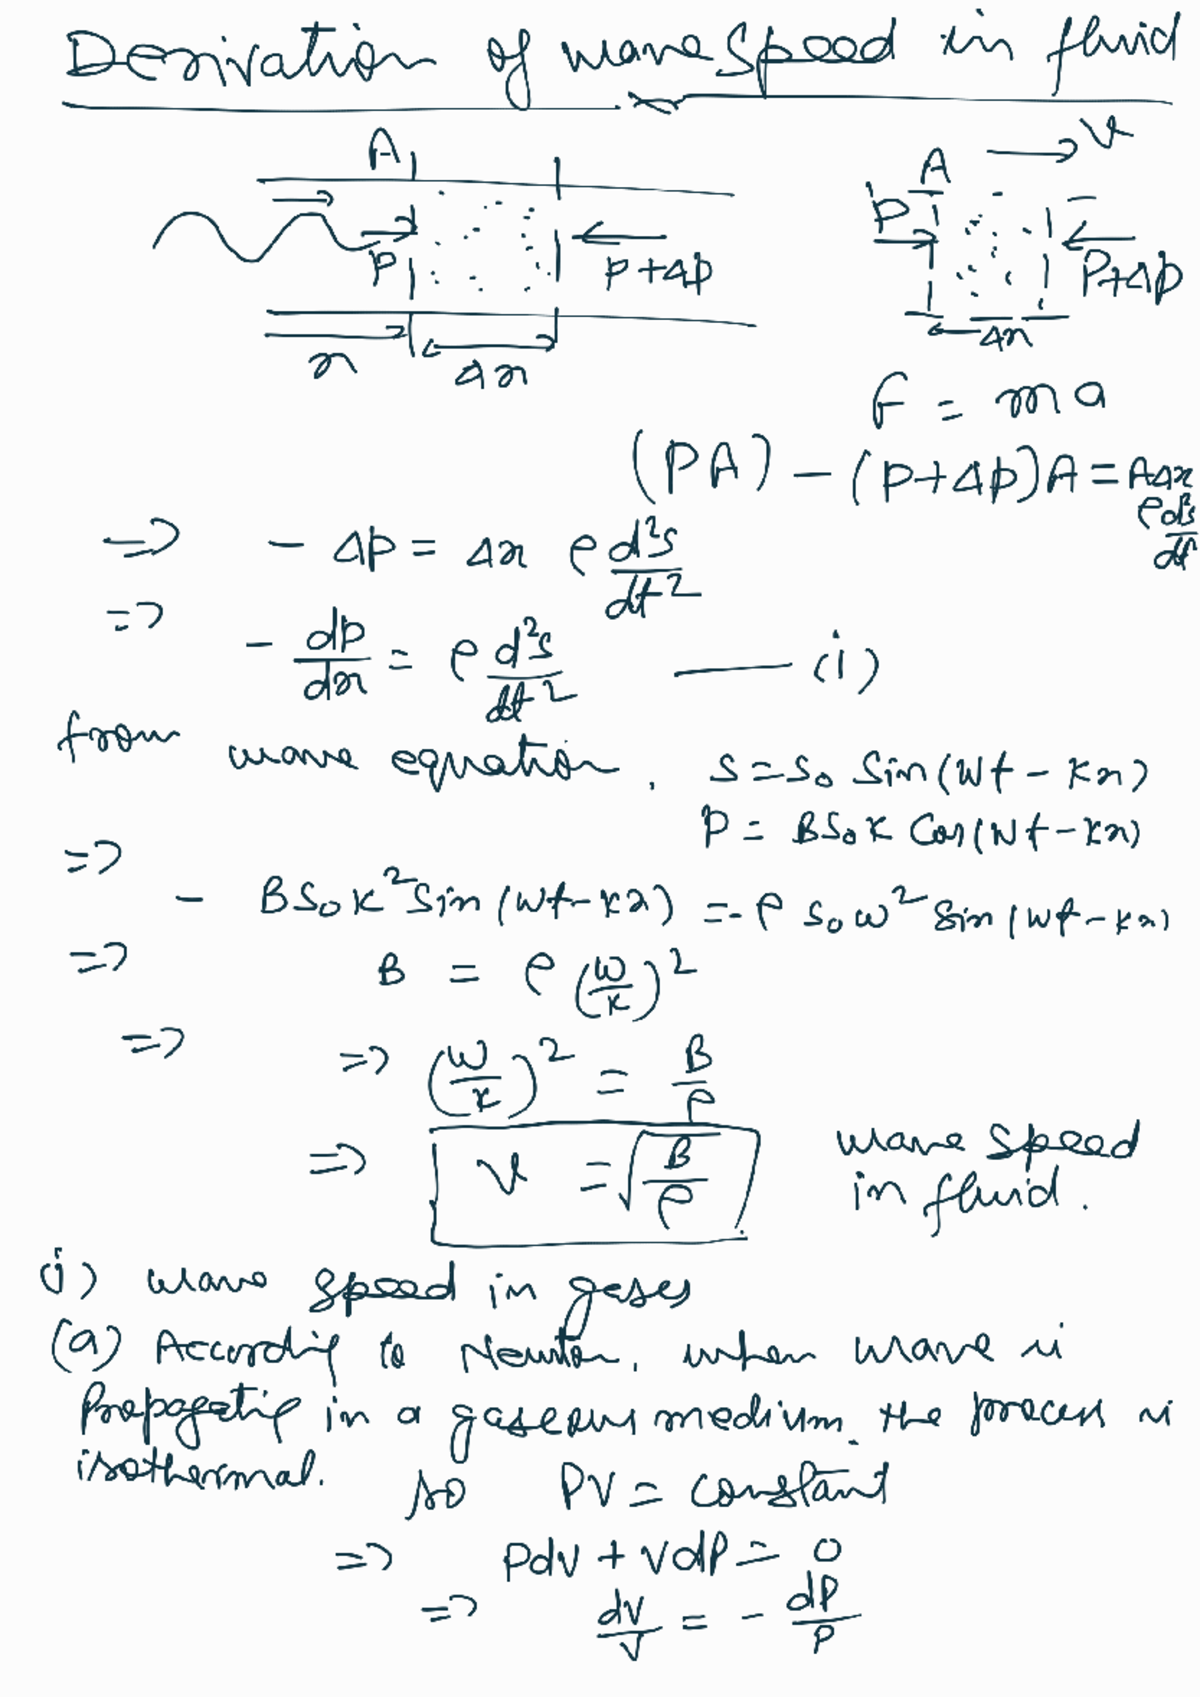 Derivation of wave speed in fluid
A
P
P+ΔP
x
Δx
A
v
P
P+ΔP
Δx
F = ma
(PA) - (P+ΔP)A = AΔx ρ d²s/dt²
=> - ΔP = Δx ρ d²s/dt²
=> - dp/dx = ρ d²s/dt² —— (i)
from wave equation, s = s₀ Sin(wt - kx)
P = BS₀K Cos(wt - kx)
=>
- BS₀K² Sin(wt - kx) = - ρ s₀ω² Sin(wt - kx)
=> B = ρ (w/k)²
=> => (w/k)² = B/ρ
=> v = √(B/ρ) wave speed in fluid.
(i) wave speed in gases
(a) According to Newton, when wave is
Propagating in a gaseous medium the process is
isothermal. so PV = constant
=> PdV + VdP = 0
=> dV/V = - dP/P